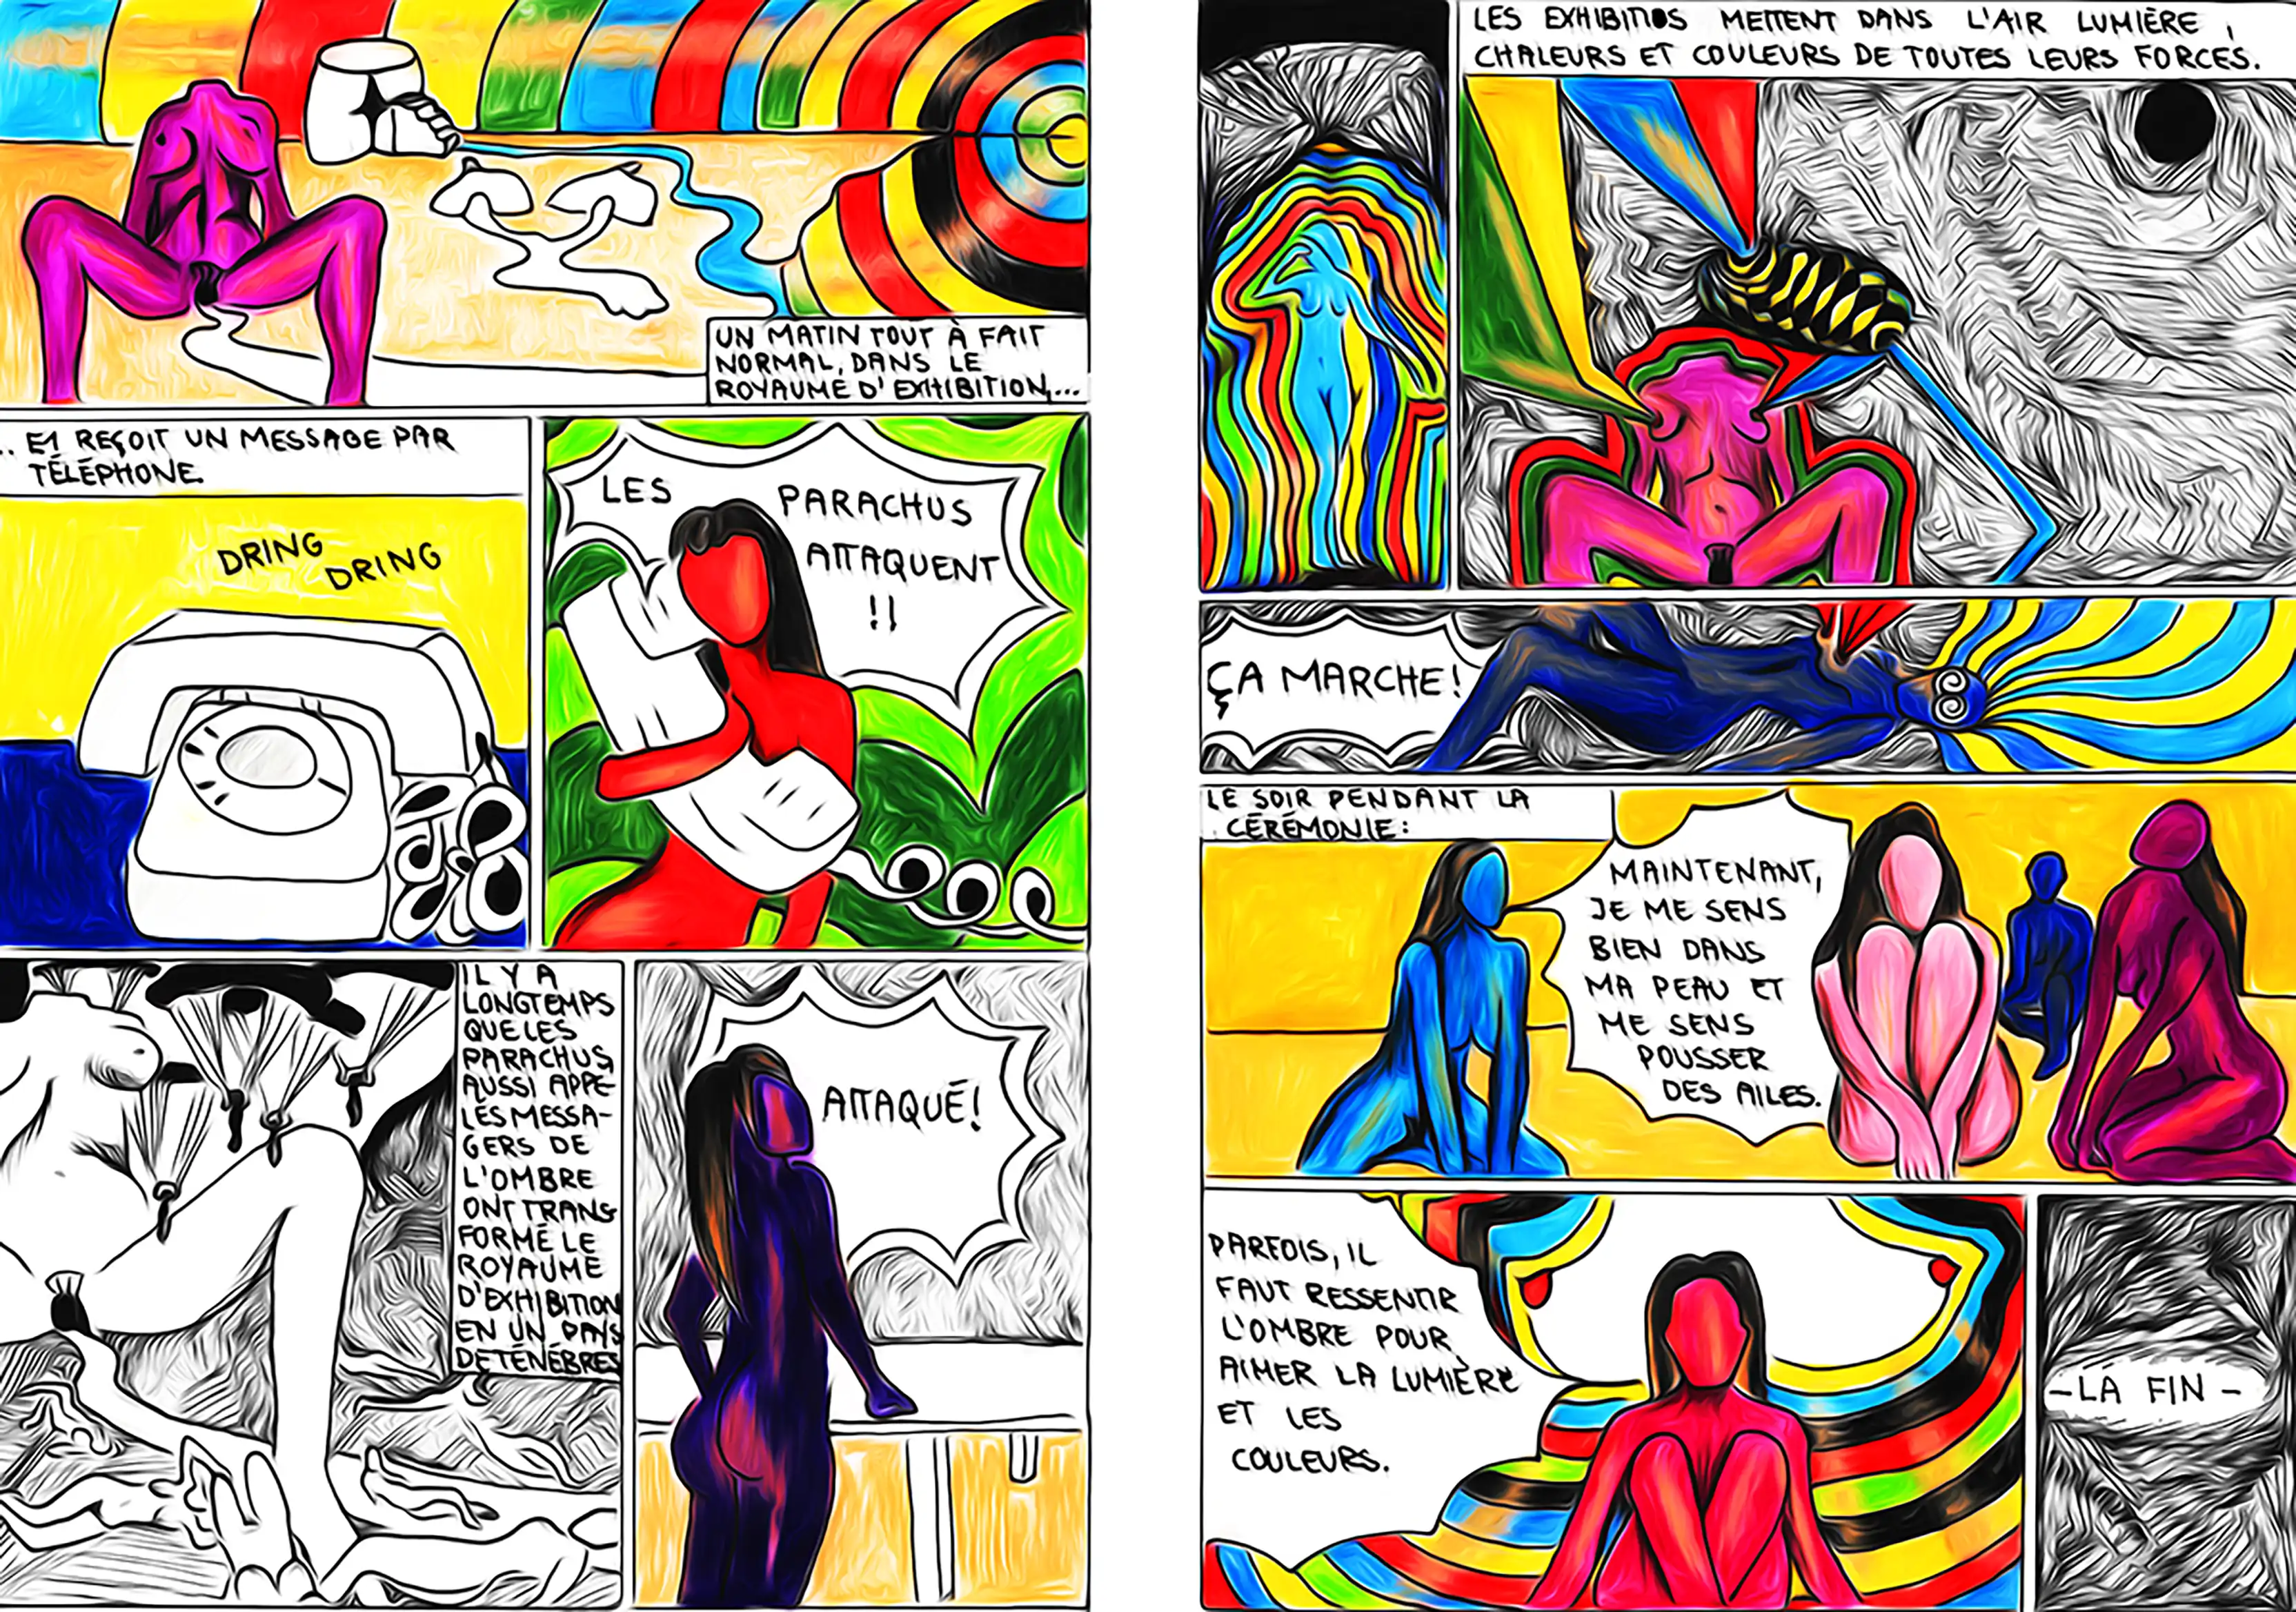 UN MATIN TOUT À FAIT
NORMAL, DANS LE
ROYAUME D'EXHIBITION,...
.. ET REÇOIT UN MESSAGE PAR
TÉLÉPHONE.
DRING
DRING
LES PARACHUS
ATTAQUENT
!!
IL Y A
LONGTEMPS
QUE LES
PARACHUS,
AUSSI APPE-
LÉS MESSA-
GERS DE
L'OMBRE
ONT TRANS-
FORMÉ LE
ROYAUME
D'EXHIBITION
EN UN PAYS
DE TÉNÉBRES
ATTAQUÉ!
LES EXHIBITIOS METTENT DANS L'AIR LUMIÈRE,
CHALEURS ET COULEURS DE TOUTES LEURS FORCES.
ÇA MARCHE!
LE SOIR PENDANT LA
CÉRÉMONIE:
MAINTENANT,
JE ME SENS
BIEN DANS
MA PEAU ET
ME SENS
POUSSER
DES AILES.
PARFOIS, IL
FAUT RESSENTIR
L'OMBRE POUR
AIMER LA LUMIÈRE
ET LES
COULEURS.
- LA FIN -